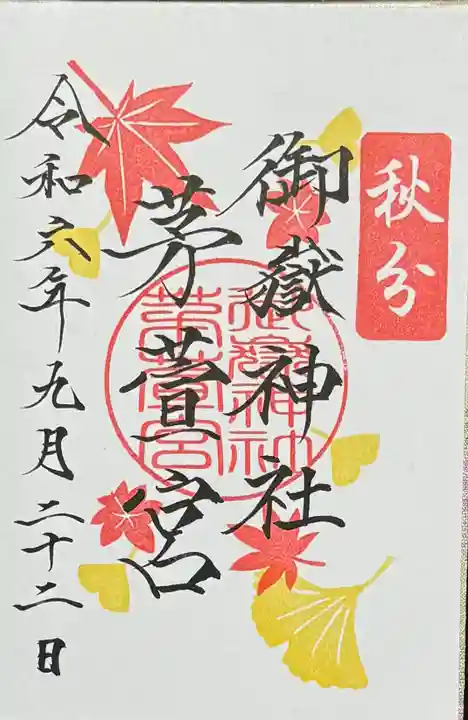 秋分
御嶽神社
茅萱宮
御嶽神社
茅萱宮
令和六年九月二十二日